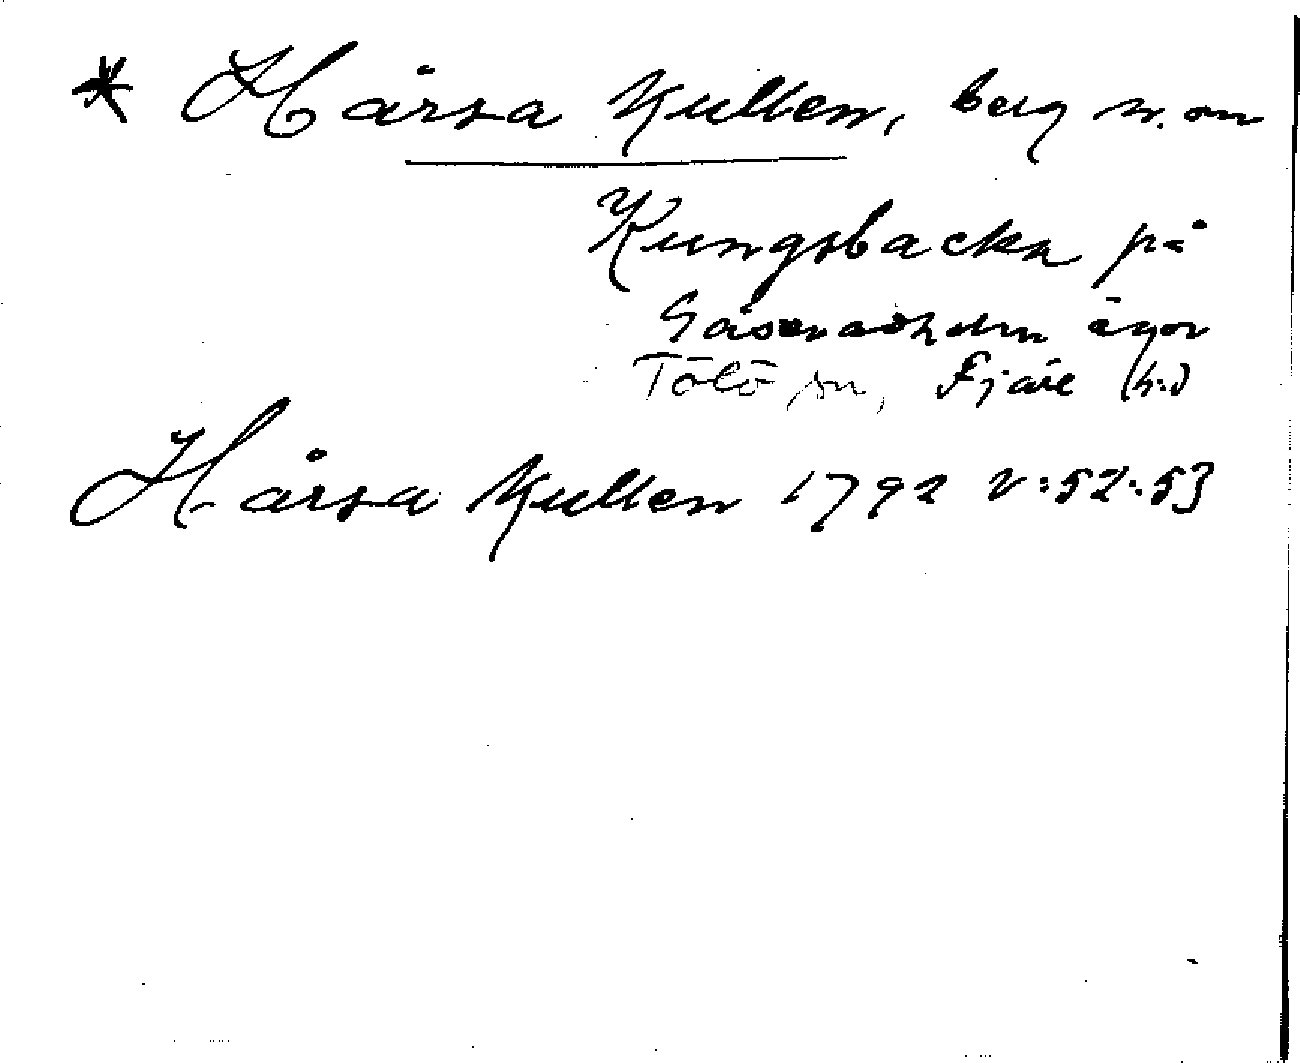 * Hårsa Kullen, berg n. om
Kungsbacka på
Gåsevadholm ägor
Tölö sn, Fjäre (h:d
Hårsa Kullen 1792 V:52:53